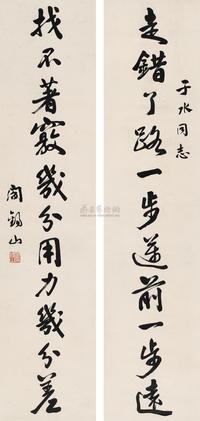 走錯了路一步邁前一步遠
于水同志
找不著竅幾分用力幾分差
閻錫山